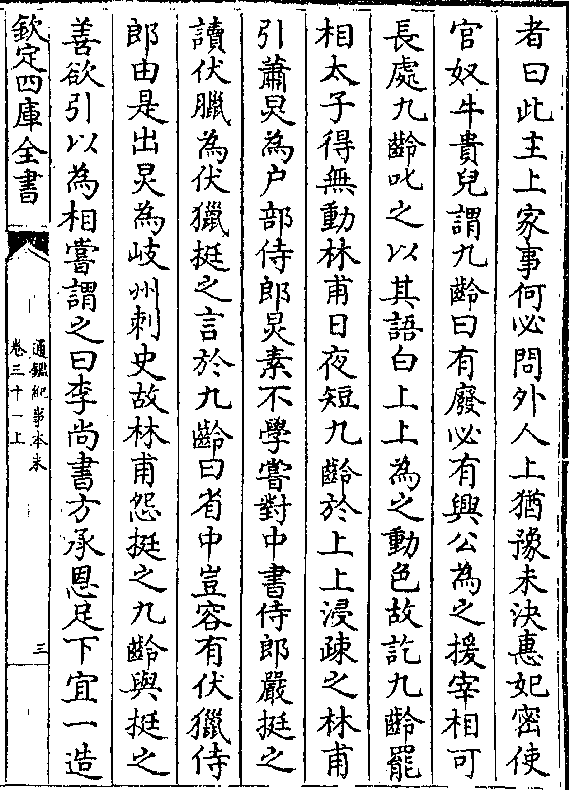 者曰此主上家事何必問外人上猶豫未決惠妃宻使
官奴牛貴兒謂九齡曰有廢必有興公為之援宰相可
長處九齡叱之以其語白上上為之動色故訖九齡罷
相太子得無動林甫日夜短九齡於上上浸疎之林甫
引蕭炅為户部侍郎炅素不學嘗對中書侍郎嚴挺之
讀伏臘為伏獵挺之言於九齡曰省中豈容有伏獵侍
郎由是出炅為岐州刺史故林甫怨挺之九齡與挺之
善欲引以為相嘗謂之曰李尚書方承恩足下宜一造
欽定四庫全書
通鑑紀事本末
卷三十一上
三